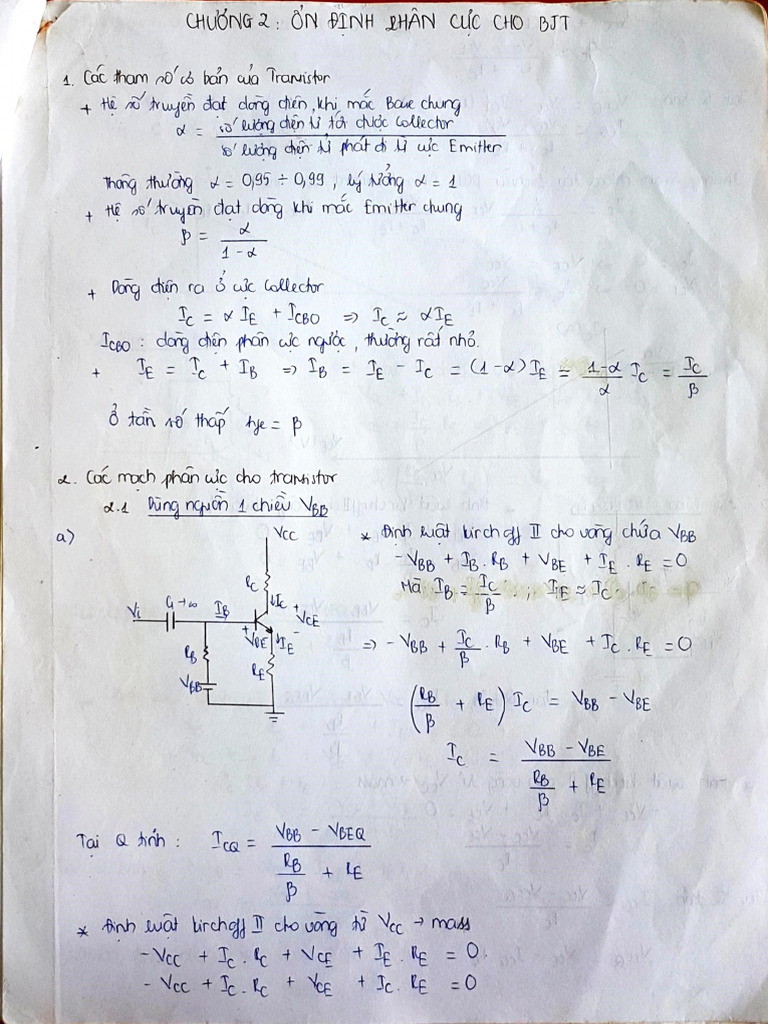 CHƯƠNG 2: ỔN ĐỊNH PHÂN CỰC CHO BJT
1. Các tham số cơ bản của Transistor
+ Hệ số truyền đạt dòng điện, khi mắc Base chung
α = số lượng điện tử tới được Collector / số lượng điện tử phát đi từ cực Emitter
Thông thường α = 0,95 ÷ 0,99 ; lý tưởng α = 1
+ Hệ số truyền đạt dòng khi mắc Emitter chung
β = α / (1-α)
+ Dòng điện ra ở cực Collector
I_C = α I_E + I_CBO ⇒ I_C ≈ αI_E
I_CBO : dòng điện phân cực ngược, thường rất nhỏ.
+ I_E = I_C + I_B ⇒ I_B = I_E - I_C = (1-α) I_E = (1-α)/α I_C = I_C/β
Ở tần số thấp hfe = β
2. Các mạch phân cực cho transistor
2.1 Dùng nguồn 1 chiều V_BB
a)
V_CC
R_C
↓I_C
+
V_CE
-
Vi
C1→∞
I_B
+
V_BE
-
↓I_E
R_B
R_E
V_BB
* Định luật kirchoff II cho vòng chứa V_BB
-V_BB + I_B . R_B + V_BE + I_E . R_E = 0
Mà I_B = I_C/β ; I_E ≈ I_C
⇒ - V_BB + I_C/β . R_B + V_BE + I_C . R_E = 0
(R_B/β + R_E) I_C = V_BB - V_BE
I_C = (V_BB - V_BE) / (R_B/β + R_E)
Tại Q tĩnh : I_CQ = (V_BB - V_BEQ) / (R_B/β + R_E)
* Định luật kirchoff II cho vòng từ V_CC → mass
-V_CC + I_C . R_C + V_CE + I_E . R_E = 0
-V_CC + I_C . R_C + V_CE + I_C . R_E = 0